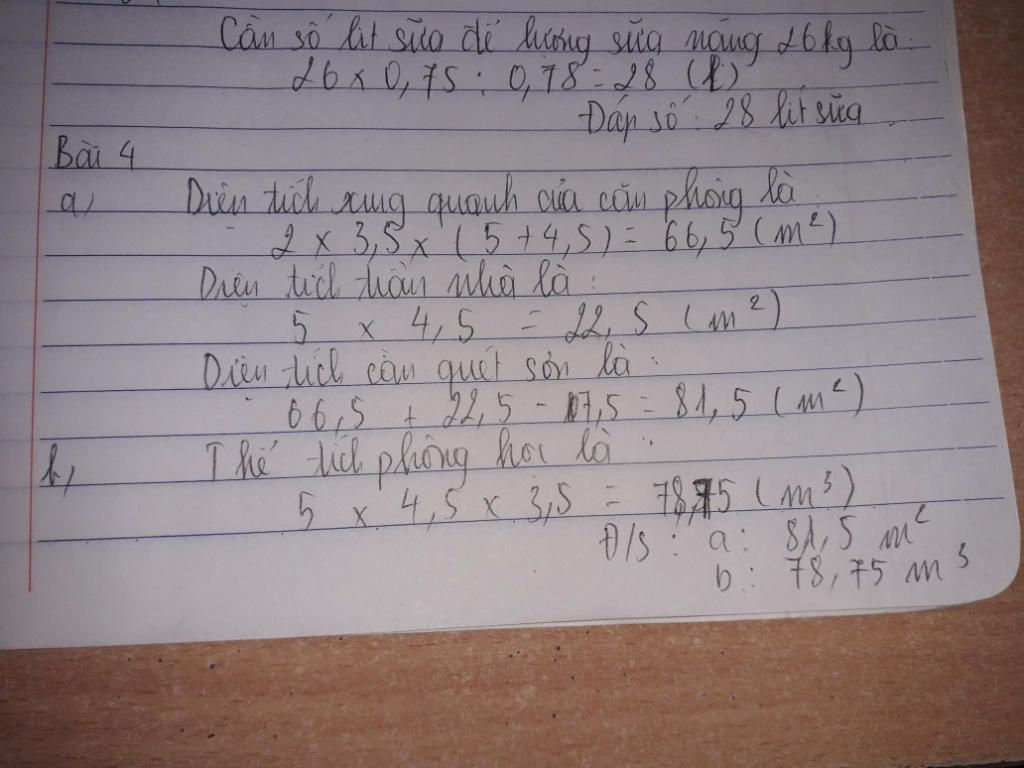 Cần số lít sữa để lượng sữa nặng 26kg là:
26 x 0,75 : 0,78 = 28 (l)
Đáp số : 28 lít sữa
Bài 4
a, Diện tích xung quanh của căn phòng là :
2 x 3,5 x ( 5 + 4,5 ) = 66,5 (m²)
Diện tích trần nhà là :
5 x 4,5 = 22,5 (m²)
Diện tích cần quét sơn là :
66,5 + 22,5 - 7,5 = 81,5 (m²)
b, Thể tích phòng học là :
5 x 4,5 x 3,5 = 78,75 (m³)
Đ/S : a : 81,5 m²
b : 78,75 m³